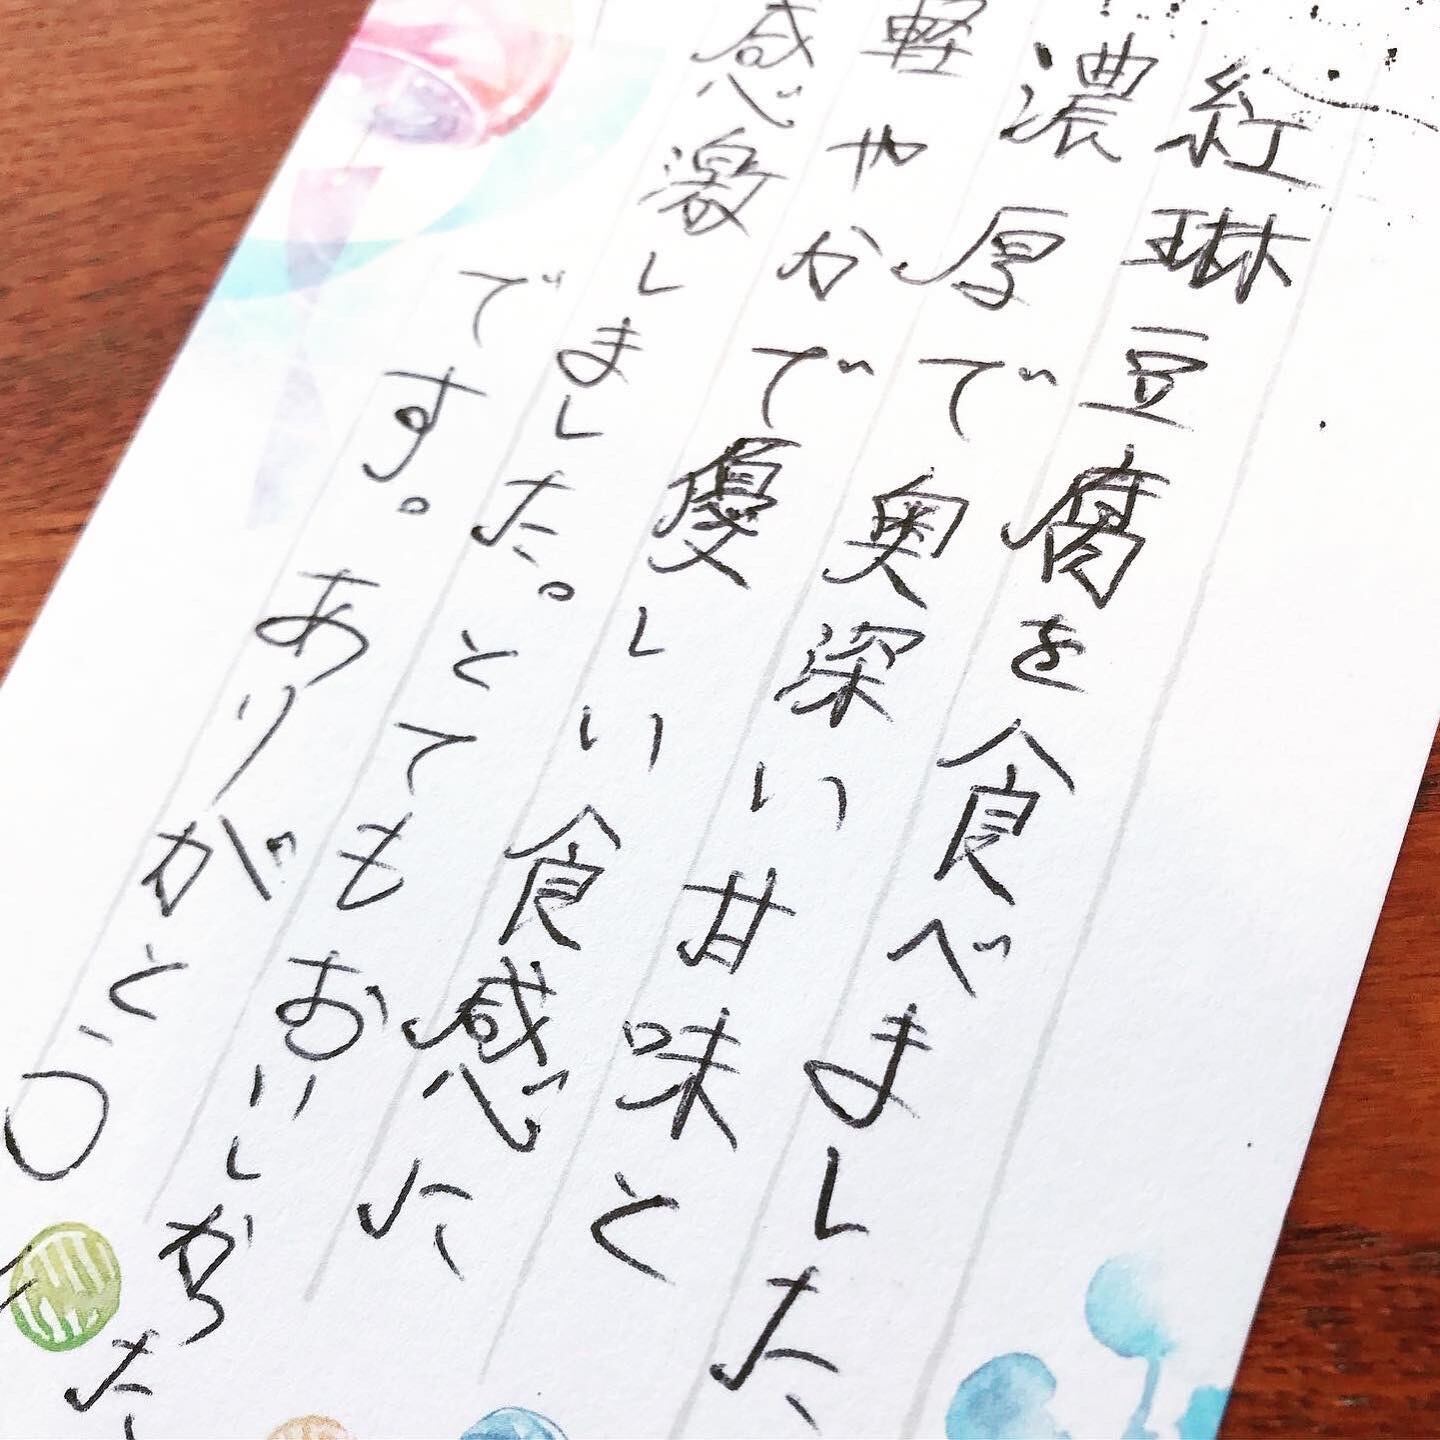 紅琳豆腐を食べました
濃厚で奥深い甘味と
軽やかで優しい食感に
感激しました。とてもおいしかった
です。ありがとう